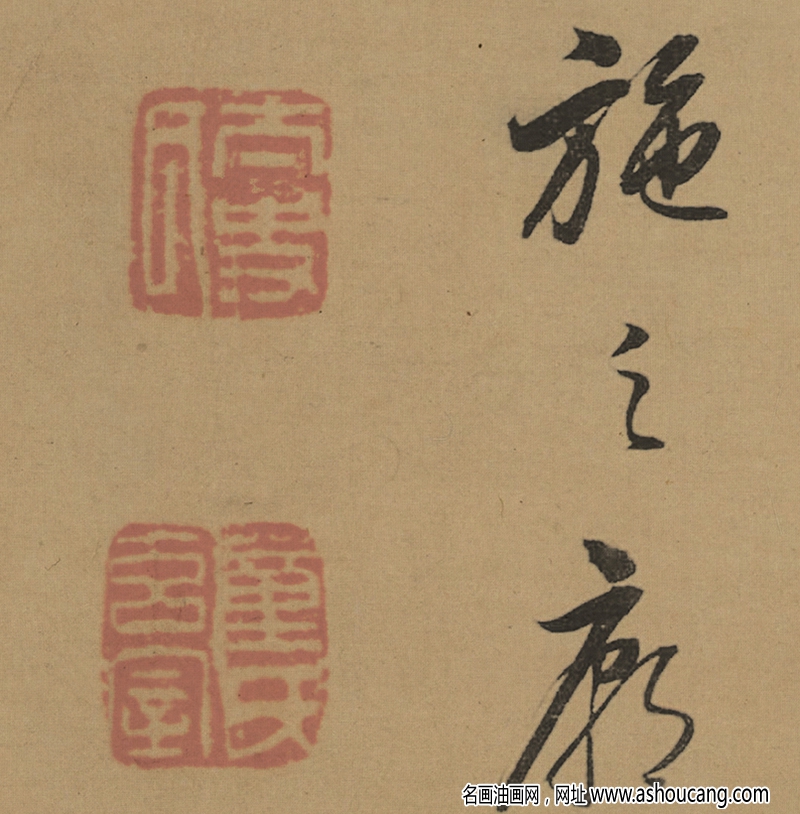 施之廊
董氏玄宰
名画油画网，网址 www.ashoucang.com